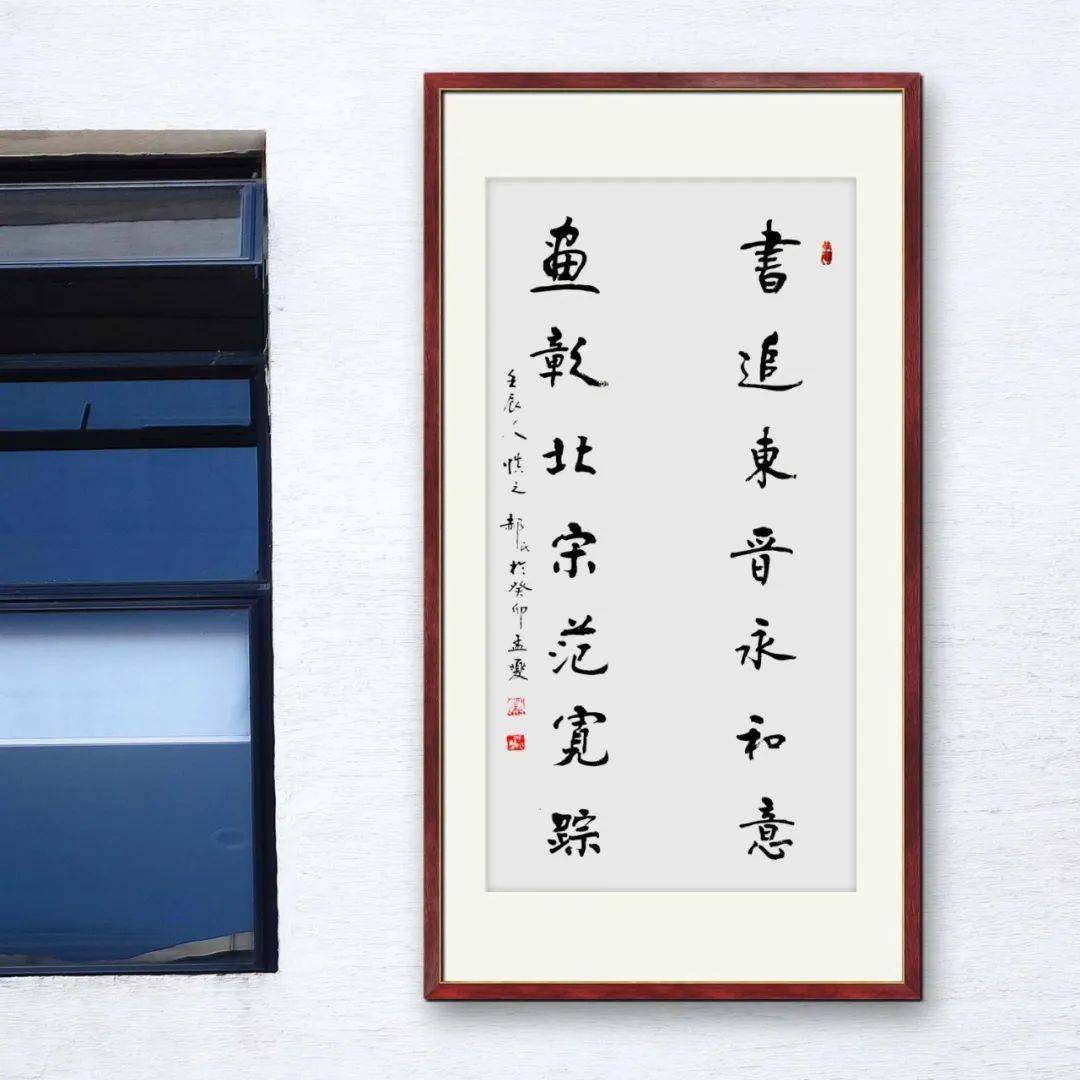 書追東晋永和意
畫彰北宋范寬踪
壬辰人慎之郝氏於癸卯孟夏